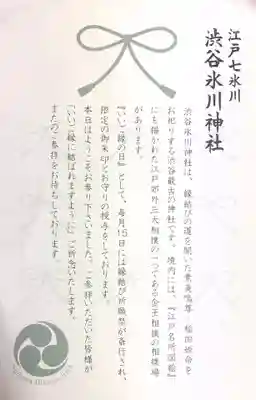 江戸七氷川
渋谷氷川神社
渋谷氷川神社は、縁結びの道を開いた素戔嗚尊・稲田姫命を
お祀りする渋谷最古の神社です。境内には、『江戸名所図絵』
にも描かれた江戸郊外三大相撲の一つである金王相撲の相撲場
があります。
『いいご縁の日』として、毎月15日には縁結び祈願祭が斎行され、
限定の御朱印とお守りの授与をしております。
本日はようこそお参り下さいました。ご参拝いただいた皆様が
『いいご縁に結ばれますように』ご祈念いたします。
またのご参拝をお待ちしております